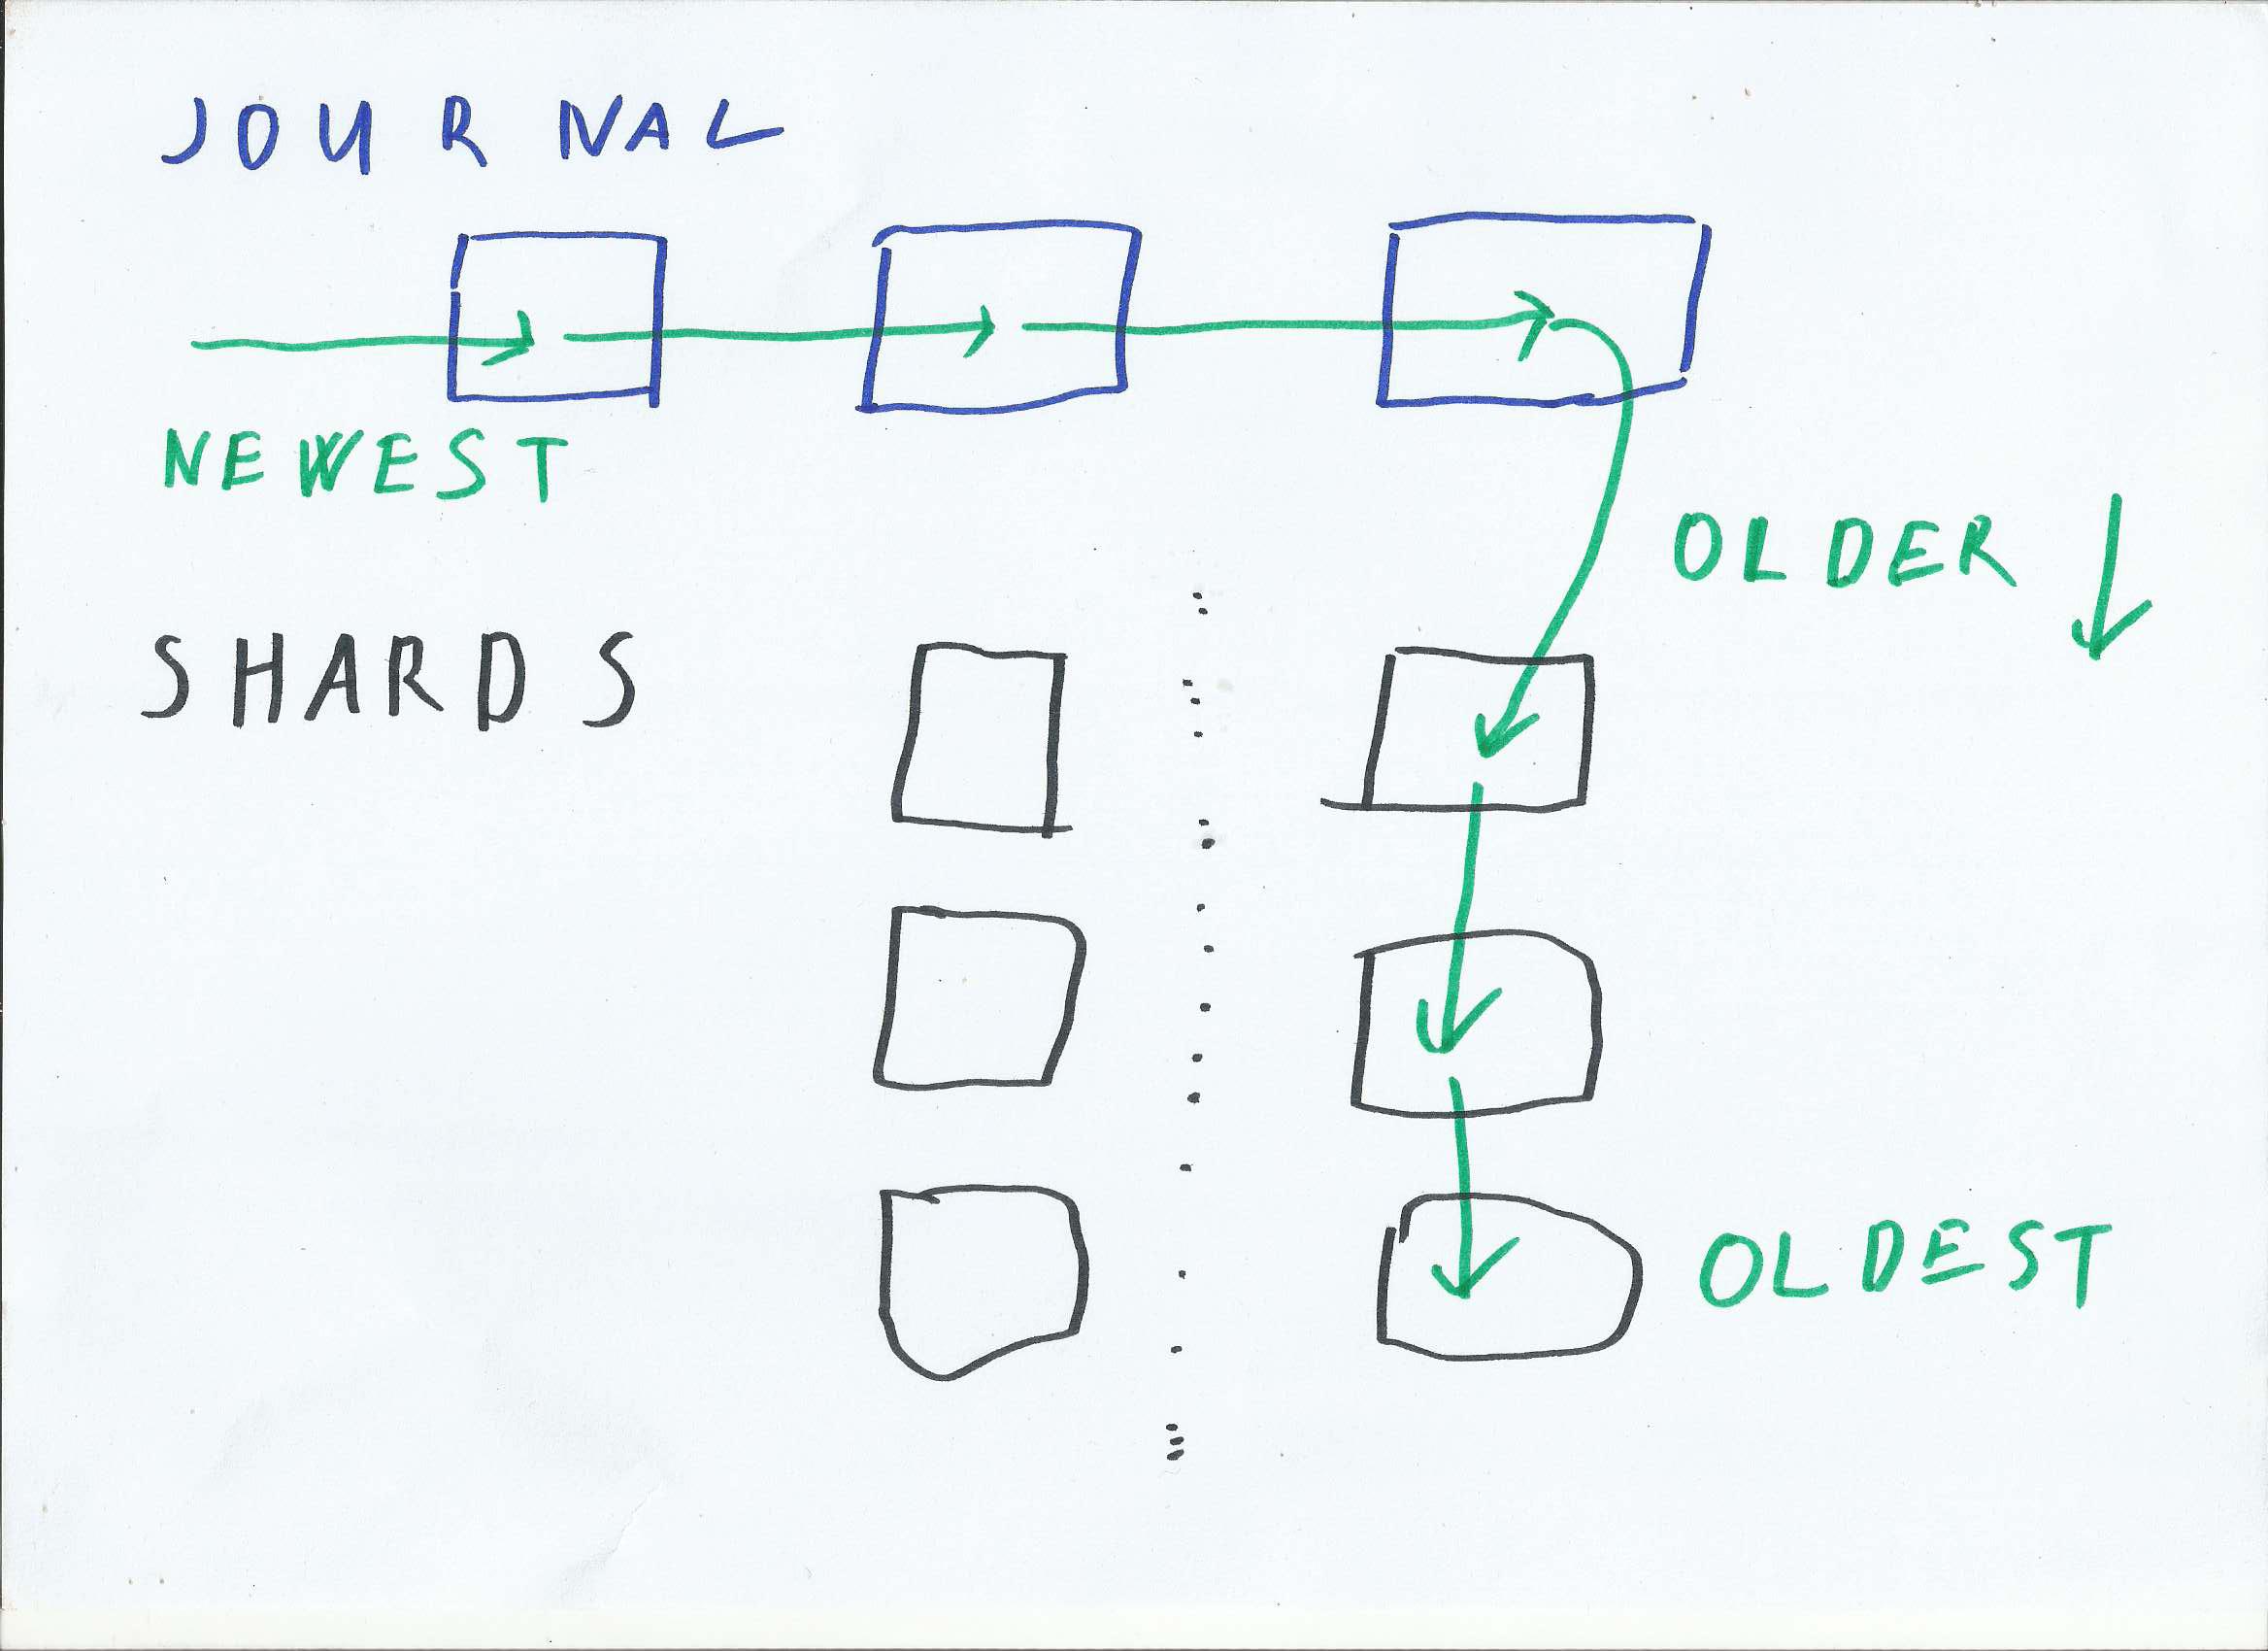 JOURNAL
NEWEST
OLDER
SHARDS
OLDEST